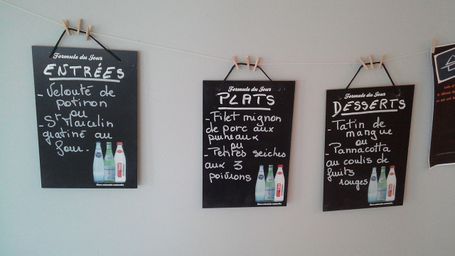 Formule du Jour
ENTRÉES
- Velouté de
potiron
ou
- St Marcellin
gratiné au
four.
Formule du Jour
PLATS
- Filet mignon
de porc aux
pruneaux
ou
- Petites seiches
aux 3
poivrons
Formule du Jour
DESSERTS
- Tatin de
mangue
ou
- Pannacotta
au coulis de
fruits
rouges